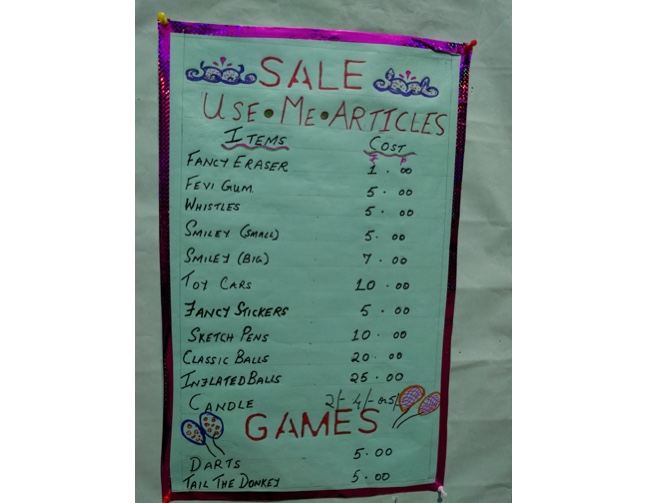 SALE
USE • ME • ARTICLES
ITEMS COST
₹ P
FANCY ERASER 1 . 00
FEVI GUM 5 . 00
WHISTLES 5 . 00
SMILEY (SMALL) 5 . 00
SMILEY (BIG) 7 . 00
TOY CARS 10 . 00
FANCY STICKERS 5 . 00
SKETCH PENS 10 . 00
CLASSIC BALLS 20 . 00
INFLATED BALLS 25 . 00
CANDLE 2/- 4/- or 5/-
GAMES
DARTS 5.00
TAIL THE DONKEY 5.00